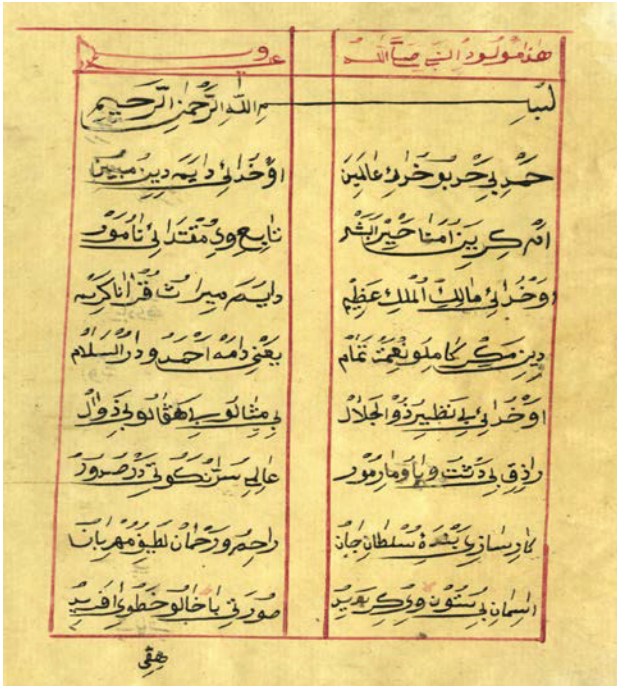 هٰذَا مَوْلُودُ النَّبِي صَلَّى اللّٰهُ عَلَيْهِ وَسَلَّمَ
بِسْمِ اللّٰهِ الرَّحْمٰنِ الرَّحِيمِ
حَمْدِ بِي حَدْ بُو خُدَائِ عَالَمِينَ اَوْ خُدَائِ دَايَه دِينِ مُبِينْ
اَم كِرِينَ اُمَّتَا خَيْرُ الْبَشَرْ تَابِعِ وِي مُقْتَدَائِ نَامْوَرْ
اَوْ خُدَائِ مَالِكِ الْمُلْكِ عَظِيمْ دَايَه مَه مِيرَاثِ قُرْآنَا كَرِيمْ
دِينِ مَه كِرْ كَامِلُ و نِعْمَتْ تَمَامْ يَعْنِي دَامَه اَحْمَدُ و دَارُ السَّلَامْ
اَوْ خُدَائِ بِي نَظِيرِ ذُو الْجَلَالْ بِي مِثَالُ و بِي هَڤَالُ و بِي زَوَالْ
رَازِقِ بِي دَسْت و پَا و مَار و مُورْ عَالِمِ سِرّا نَكُوتِي دَرْ صُدُورْ
كَارِسَازِي بَنْدَهٔ سُلْطَانِ جَانْ رَاحِم و رَحْمَان لَطِيفُ و مِهْرِبَانْ
اَسْمَانِ بِي سُتُونْ وِي كِر بَدِيدْ صُورَتِي بَا خَالُ و خَطْ وِي اٰفَرِيدْ
هِڤِي